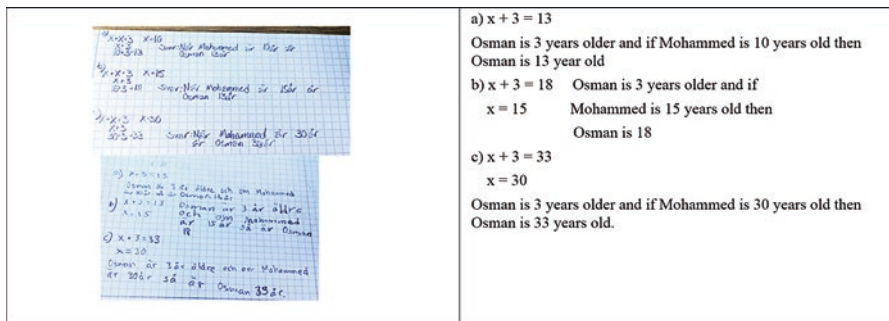 a)
x+x+3 x=10
x+3
10+3=13 Svar: När Mohammed är 10 år är
Osman 13 år
b)
x+x+3 x=15
x+3
Svar: När Mohammed är 15 år är
Osman
x+x+3 x=30
x+3
30+3=33 Svar: När Mohammed är 30 år
är Osman
a) x+3=13
Osman är 3 år äldre och om Mohammed
är 10 år så är Osman 13 år
b) x+3=18 Osman är 3 år äldre
x=15 och om Mohammed
är 15 år så är Osman
18
c) x+3=33
x=30
Osman är 3 år äldre och om Mohammed
är 30 år så är Osman 33 år.
a) x + 3 = 13
Osman is 3 years older and if Mohammed is 10 years old then
Osman is 13 year old
b) x + 3 = 18 Osman is 3 years older and if
x = 15 Mohammed is 15 years old then
Osman is 18
c) x + 3 = 33
x = 30
Osman is 3 years older and if Mohammed is 30 years old then
Osman is 33 years old.